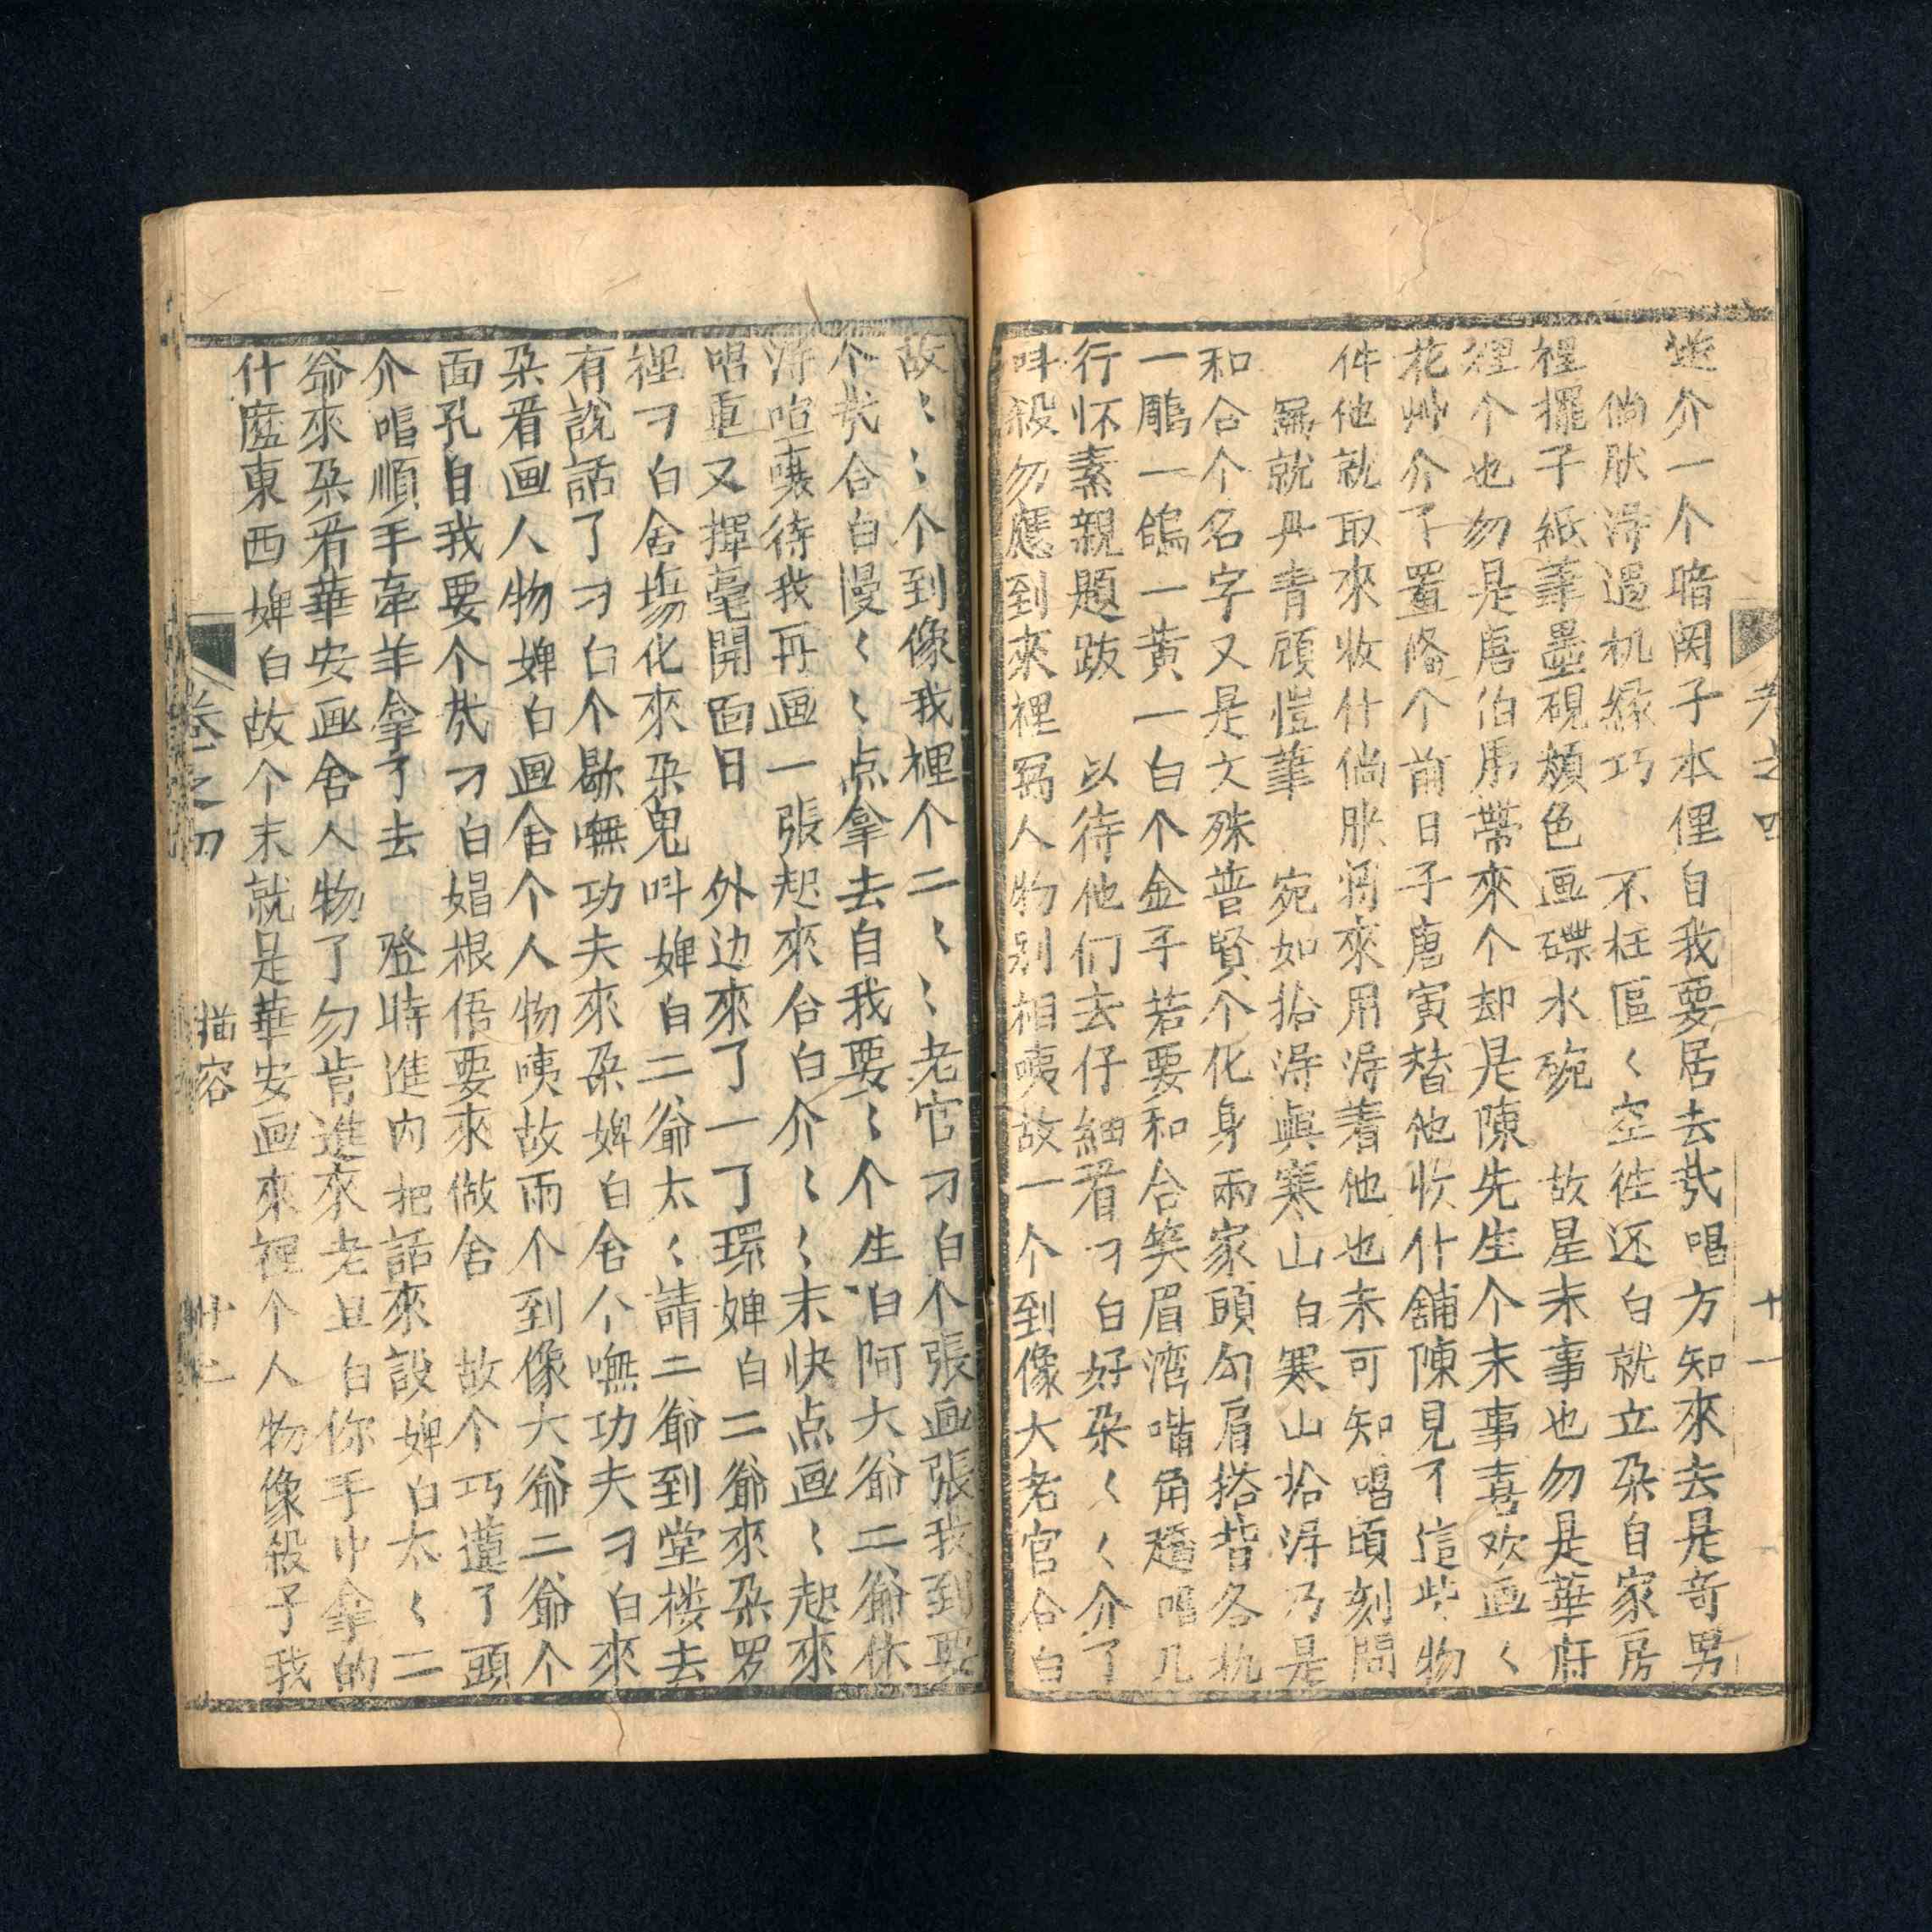 卷之四 十一
介一个暗闵子本俚自我要居去哉 唱方知來去是奇男
倘肰淂遇机緣巧 不枉區〻空徃还 白就立朶自家房
裡擺子紙筆墨硯顏色画碟水碗 故星末事也勿是華府
裡个也勿是唐伯虎帶來个却是陳先生个末事喜欢画〻
花艸介了置俻个前日子唐寅替他收什舖陳見了這些物
件他就取來收什倘肰將來用淂着他也未可知 唱頃刻間
寫就丹青顧愷筆 宛如拾淂與寒山 白寒山拾淂乃是
和合个名字又是文殊普賢个化身兩家頭勾肩搭背各执
一鵰一鴿一黄一白个金子若要和合笑眉湾嘴角趫 唱几
行怀素親題跋 以待他们去仔細看 刁白好朶〻〻介了
呌殺勿應到來裡寫人物别相咦故一个到像大老官 合白
故〻〻个到像我裡个二〻〻老官 刁白个張画張我到要
个哉 合白慢〻〻点拿去自我要〻个 生白阿大爺二爺休
淂喧嚷待我再画一張起來 合白介〻〻末快点画〻起來
唱重又揮毫開面目 外边來了一了環 婢白二爺來朶罗
裡 刁白舍塲化來朶鬼呌 婢白二爺太〻請二爺到堂楼去
有說話了 刁白个歇嘸功夫來朶 婢白舍个嘸功夫 刁白來
朶看画人物 婢白画舍个人物咦故兩个到像大爺二爺个
面孔自我要个哉 刁白娼根俉要來做舍 故个巧蓮了頭
介 唱順手牽羊拿了去 登時進内把話來說 婢白太〻二
爺來朶看華安画舍人物了勿肯進來 老旦白你手中拿的
什麽東西 婢白故个末就是華安画來裡个人物像殺子我
卷之四 描容